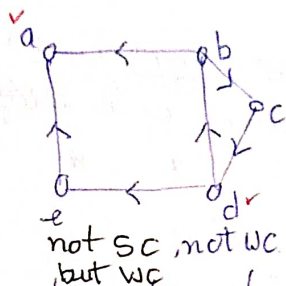 a
b
c
e
d
not SC, not WC
, but WC